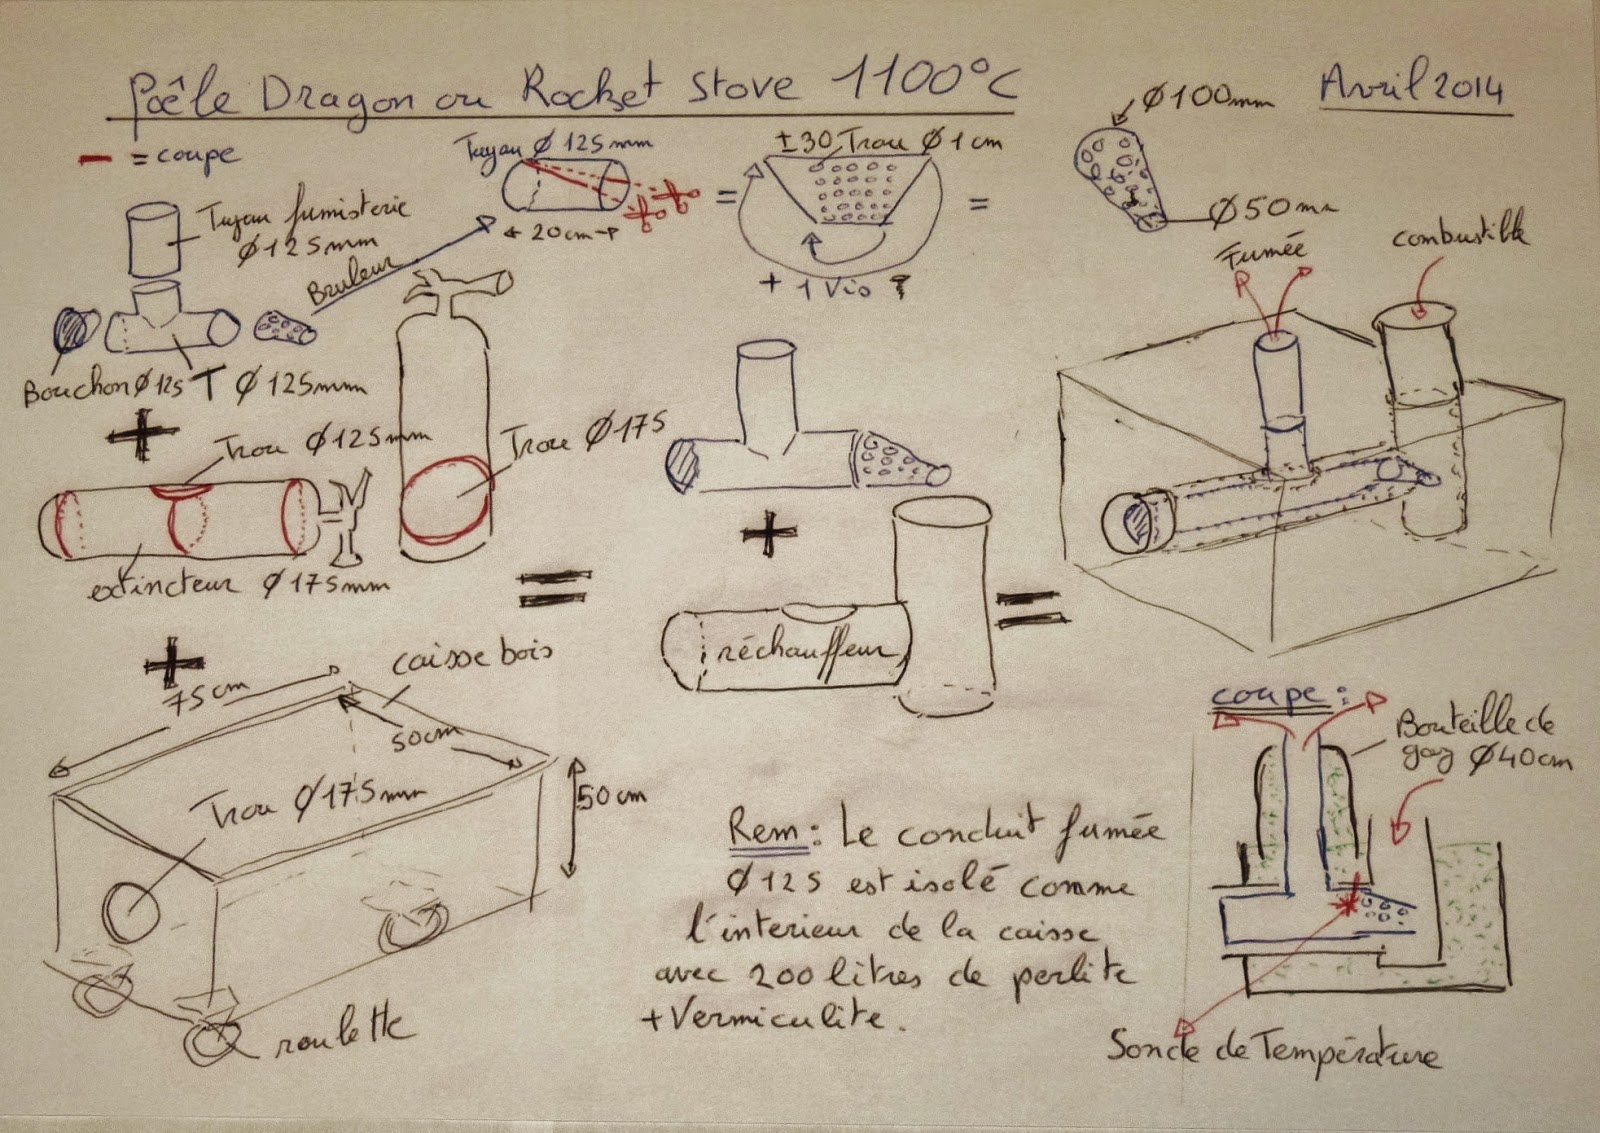 Poêle Dragon ou Rocket Stove 1100°C
Avril 2014
= coupe
Tuyau Ø 125mm
20cm
=
±30 Trou Ø 1cm
+ 1 Vis
=
Ø100mm
Ø50mm
Tuyau fumisterie
Ø125mm
Bruleur
Bouchon Ø125
T Ø 125mm
+
Trou Ø125mm
extincteur Ø175mm
Trou Ø175
+
caisse bois
75cm
50cm
50cm
Trou Ø175mm
roulette
=
+
réchauffeur
=
Fumée
combustible
Rem: Le conduit fumée
Ø125 est isolé comme
l'interieur de la caisse
avec 200 litres de perlite
+Vermiculite.
coupe:
Bouteille de
gaz Ø40cm
Sonde de Température